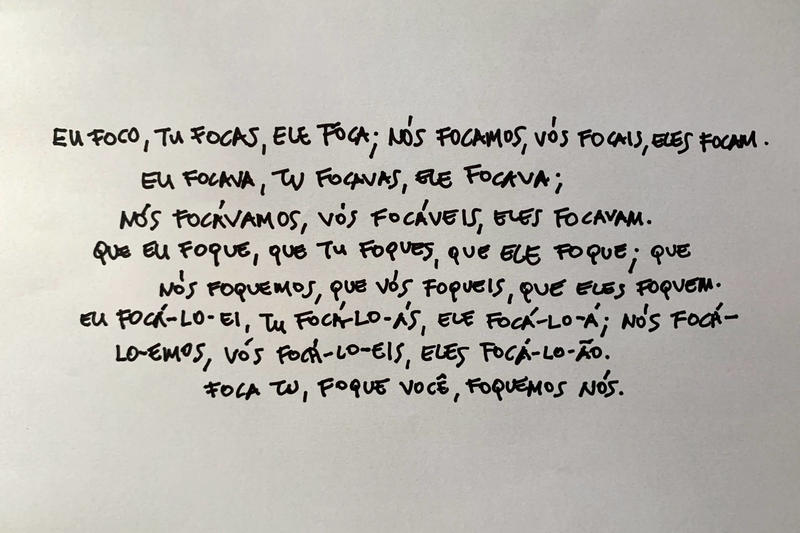 EU FOCO, TU FOCAS, ELE FOCA; NÓS FOCAMOS, VÓS FOCAIS, ELES FOCAM.
EU FOCAVA, TU FOCAVAS, ELE FOCAVA;
NÓS FOCÁVAMOS, VÓS FOCÁVEIS, ELES FOCAVAM.
QUE EU FOQUE, QUE TU FOQUES, QUE ELE FOQUE; QUE
NÓS FOQUEMOS, QUE VÓS FOQUEIS, QUE ELES FOQUEM.
EU FOCÁ-LO-EI, TU FOCÁ-LO-ÁS, ELE FOCÁ-LO-Á; NÓS FOCÁ-
LO-EMOS, VÓS FOCÁ-LO-EIS, ELES FOCÁ-LO-ÃO.
FOCA TU, FOQUE VOCÊ, FOQUEMOS NÓS.